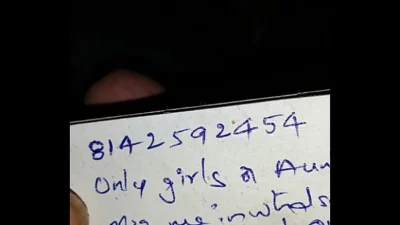 8142592454
Only girls or Aun
me in whats